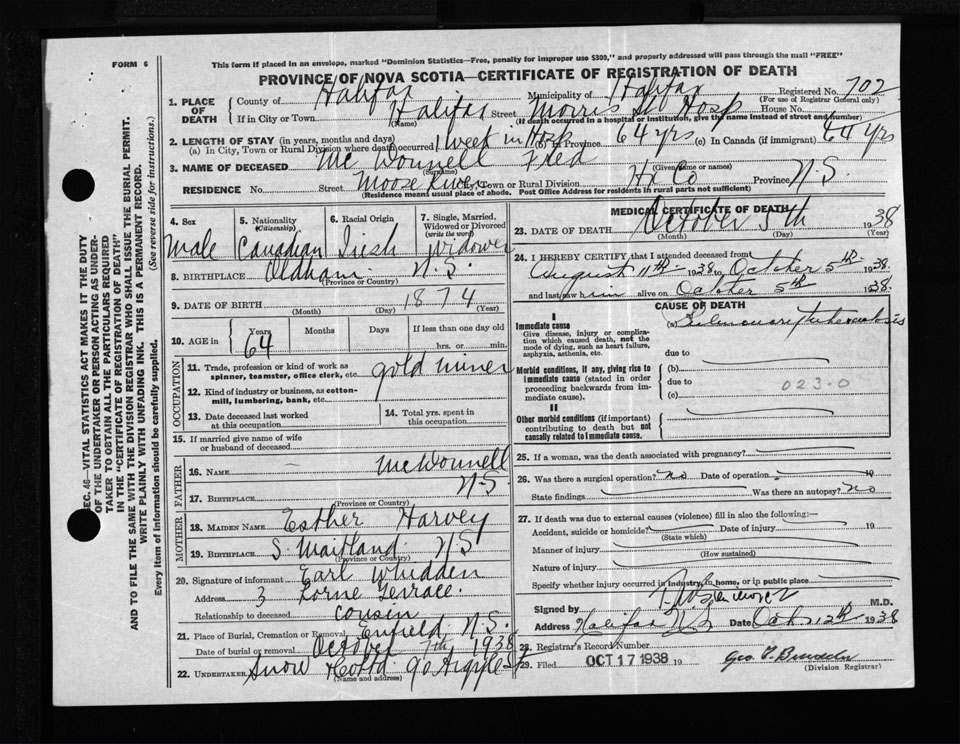 FORM 6
This form if placed in an envelope, marked "Dominion Statistics—Free, penalty for improper use $300," and properly addressed will pass through the mail "FREE"
PROVINCE OF NOVA SCOTIA—CERTIFICATE OF REGISTRATION OF DEATH
Registered No. 702
(For use of Registrar General only)
1. PLACE OF DEATH
County of Halifax Municipality of Halifax
If in City or Town Halifax Street Morris St Hosp House No.
(Name) (If death occurred in a hospital or institution, give the name instead of street and number)
2. LENGTH OF STAY (in years, months and days)
(a) In City, Town or Rural Division where death occurred 1 week in Hosp (b) In Province 64 yrs (c) In Canada (if immigrant) 64 yrs
3. NAME OF DECEASED Mc Donnell Fred
(Surname) (Given name or names)
RESIDENCE No. Street Moose River City, Town or Rural Division Hx Co Province N.S.
(Residence means usual place of abode. Post Office Address for residents in rural parts not sufficient)
4. Sex Male
5. Nationality (Citizenship) Canadian
6. Racial Origin Irish
7. Single, Married, Widowed or Divorced (write the word) Widower
8. BIRTHPLACE Oldham N.S.
(Province or Country)
9. DATE OF BIRTH 1874
(Month) (Day) (Year)
10. AGE in Years Months Days If less than one day old
64 hrs. or min.
OCCUPATION
11. Trade, profession or kind of work as spinner, teamster, office clerk, etc. gold miner
12. Kind of industry or business, as cotton-mill, lumbering, bank, etc.
13. Date deceased last worked at this occupation
14. Total yrs. spent in this occupation
15. If married give name of wife or husband of deceased
FATHER
16. NAME McDonnell
17. BIRTHPLACE N.S.
(Province or Country)
MOTHER
18. MAIDEN NAME Esther Harvey
19. BIRTHPLACE S. Maitland NS
(Province or Country)
20. Signature of informant Earl Whidden
Address 3 Lorne Terrace
Relationship to deceased cousin
21. Place of Burial, Cremation or Removal Enfield, N.S.
Date of burial or removal October 7th 1938
22. UNDERTAKER Snow 90 Argyle St
(Name and address)
MEDICAL CERTIFICATE OF DEATH
23. DATE OF DEATH October 5th 1938
(Month) (Day) (Year)
24. I HEREBY CERTIFY, that I attended deceased from
August 11th 1938 to October 5th 1938
and last saw him alive on October 5th 1938.
CAUSE OF DEATH
I
Immediate cause
Give disease, injury or complication which caused death, not the mode of dying, such as heart failure, asphyxia, asthenia, etc.
(a) Pulmonary tuberculosis
due to
Morbid conditions, if any, giving rise to immediate cause (stated in order proceeding backwards from immediate cause).
(b)
due to 023-0
(c)
II
Other morbid conditions (if important) contributing to death but not causally related to immediate cause.
25. If a woman, was the death associated with pregnancy?
26. Was there a surgical operation? no Date of operation 19
State findings Was there an autopsy? no
27. If death was due to external causes (violence) fill in also the following:—
Accident, suicide or homicide? Date of injury 19
(State which)
Manner of injury
(How sustained)
Nature of injury
Specify whether injury occurred in industry, in home, or in public place
Signed by M.D.
Address Halifax N.S. Date Oct 12th 1938
28. Registrar's Record Number
29. Filed OCT 17 1938 19
(Division Registrar)
SEC. 46—VITAL STATISTICS ACT MAKES IT THE DUTY
OF THE UNDERTAKER OR PERSON ACTING AS UNDER-
TAKER TO OBTAIN ALL THE PARTICULARS REQUIRED
IN THE "CERTIFICATE OF REGISTRATION OF DEATH"
AND TO FILE THE SAME WITH THE DIVISION REGISTRAR WHO SHALL ISSUE THE BURIAL PERMIT.
WRITE PLAINLY WITH UNFADING INK. THIS IS A PERMANENT RECORD.
Every item of information should be carefully supplied. (See reverse side for instructions.)